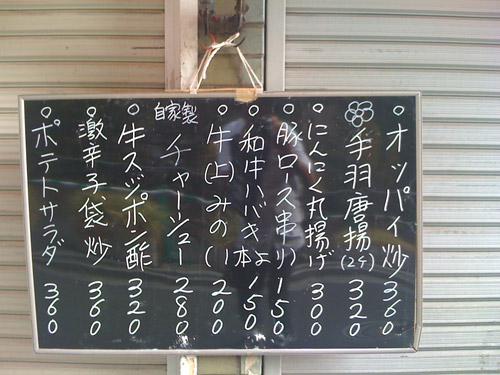 オッパイ炒 360
手羽唐揚(2ケ) 320
にんにく丸揚げ 300
豚ロース串(1) 150
和牛ハバキ(1本) 150
牛(上)みの(1) 200
自家製チャーシュー 280
牛スジポン酢 320
激辛子袋炒 360
ポテトサラダ 360